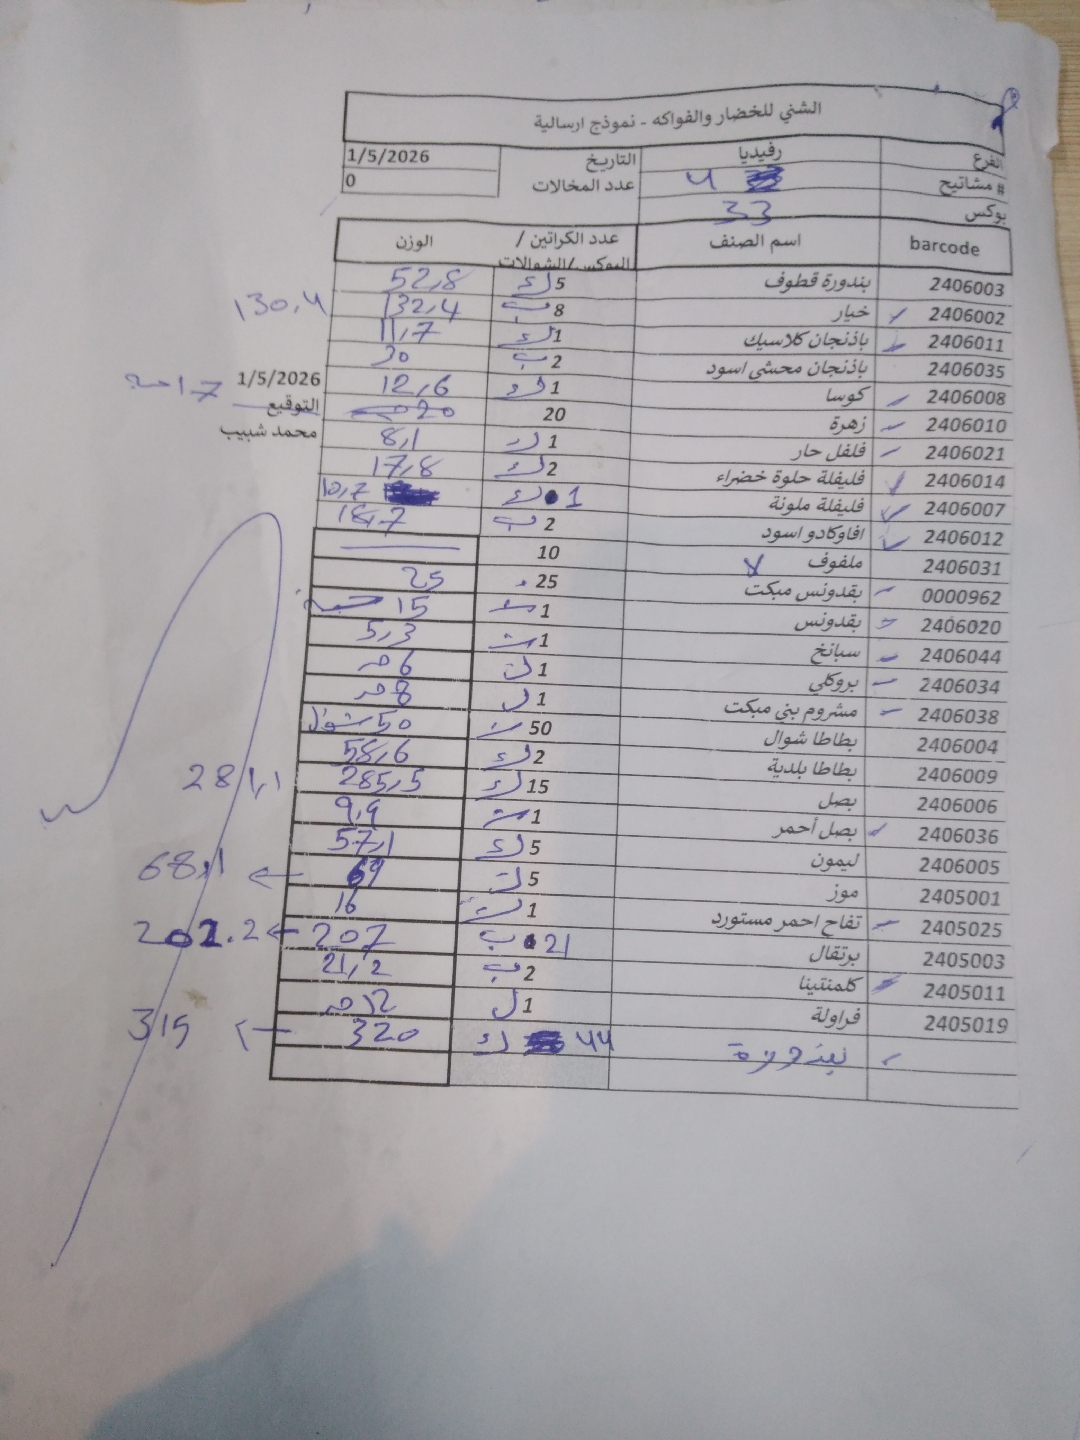 الشني للخضار والفواكه - نموذج ارسالية
الفرع رفيديا التاريخ 1/5/2026
# مشاتيح 4 عدد المخالات 0
بوكس 33
barcode اسم الصنف عدد الكراتين / البوكس/الشوالات الوزن
2406003 بندورة قطوف 5 ك 52,8
2406002 خيار 8 ب 132,4 130,4
2406011 باذنجان كلاسيك 1 ك 11,7
2406035 باذنجان محشي اسود 2 ب 20
2406008 كوسا 1 ك 12,6 1/5/2026
2406010 زهرة 20 20 التوقيع
2406021 فلفل حار 1 ك 8,1 محمد شبيب
2406014 فليفلة حلوة خضراء 2 ك 17,8
2406007 فليفلة ملونة 1 ك 10,7
2406012 افاوكادو اسود 2 ب 18,7
2406031 ملفوف 10
0000962 بقدونس مبكت 25 25
2406020 بقدونس 1 15
2406044 سبانخ 1 5,3
2406034 بروكلي 1 6
2406038 مشروم بني مبكت 1 8
2406004 بطاطا شوال 50 50 شوال
2406009 بطاطا بلدية 2 ك 58,6
2406006 بصل 15 ك 285,5 281,1
2406036 بصل أحمر 1 9,9
2406005 ليمون 5 ك 57,1
2405001 موز 5 69 68,1
2405025 تفاح احمر مستورد 1 16
2405003 برتقال 21 ب 207 202.2
2405011 كلمنتينا 2 ب 21,2
2405019 فراولة 1 12
بندورة 44 ك 320 315